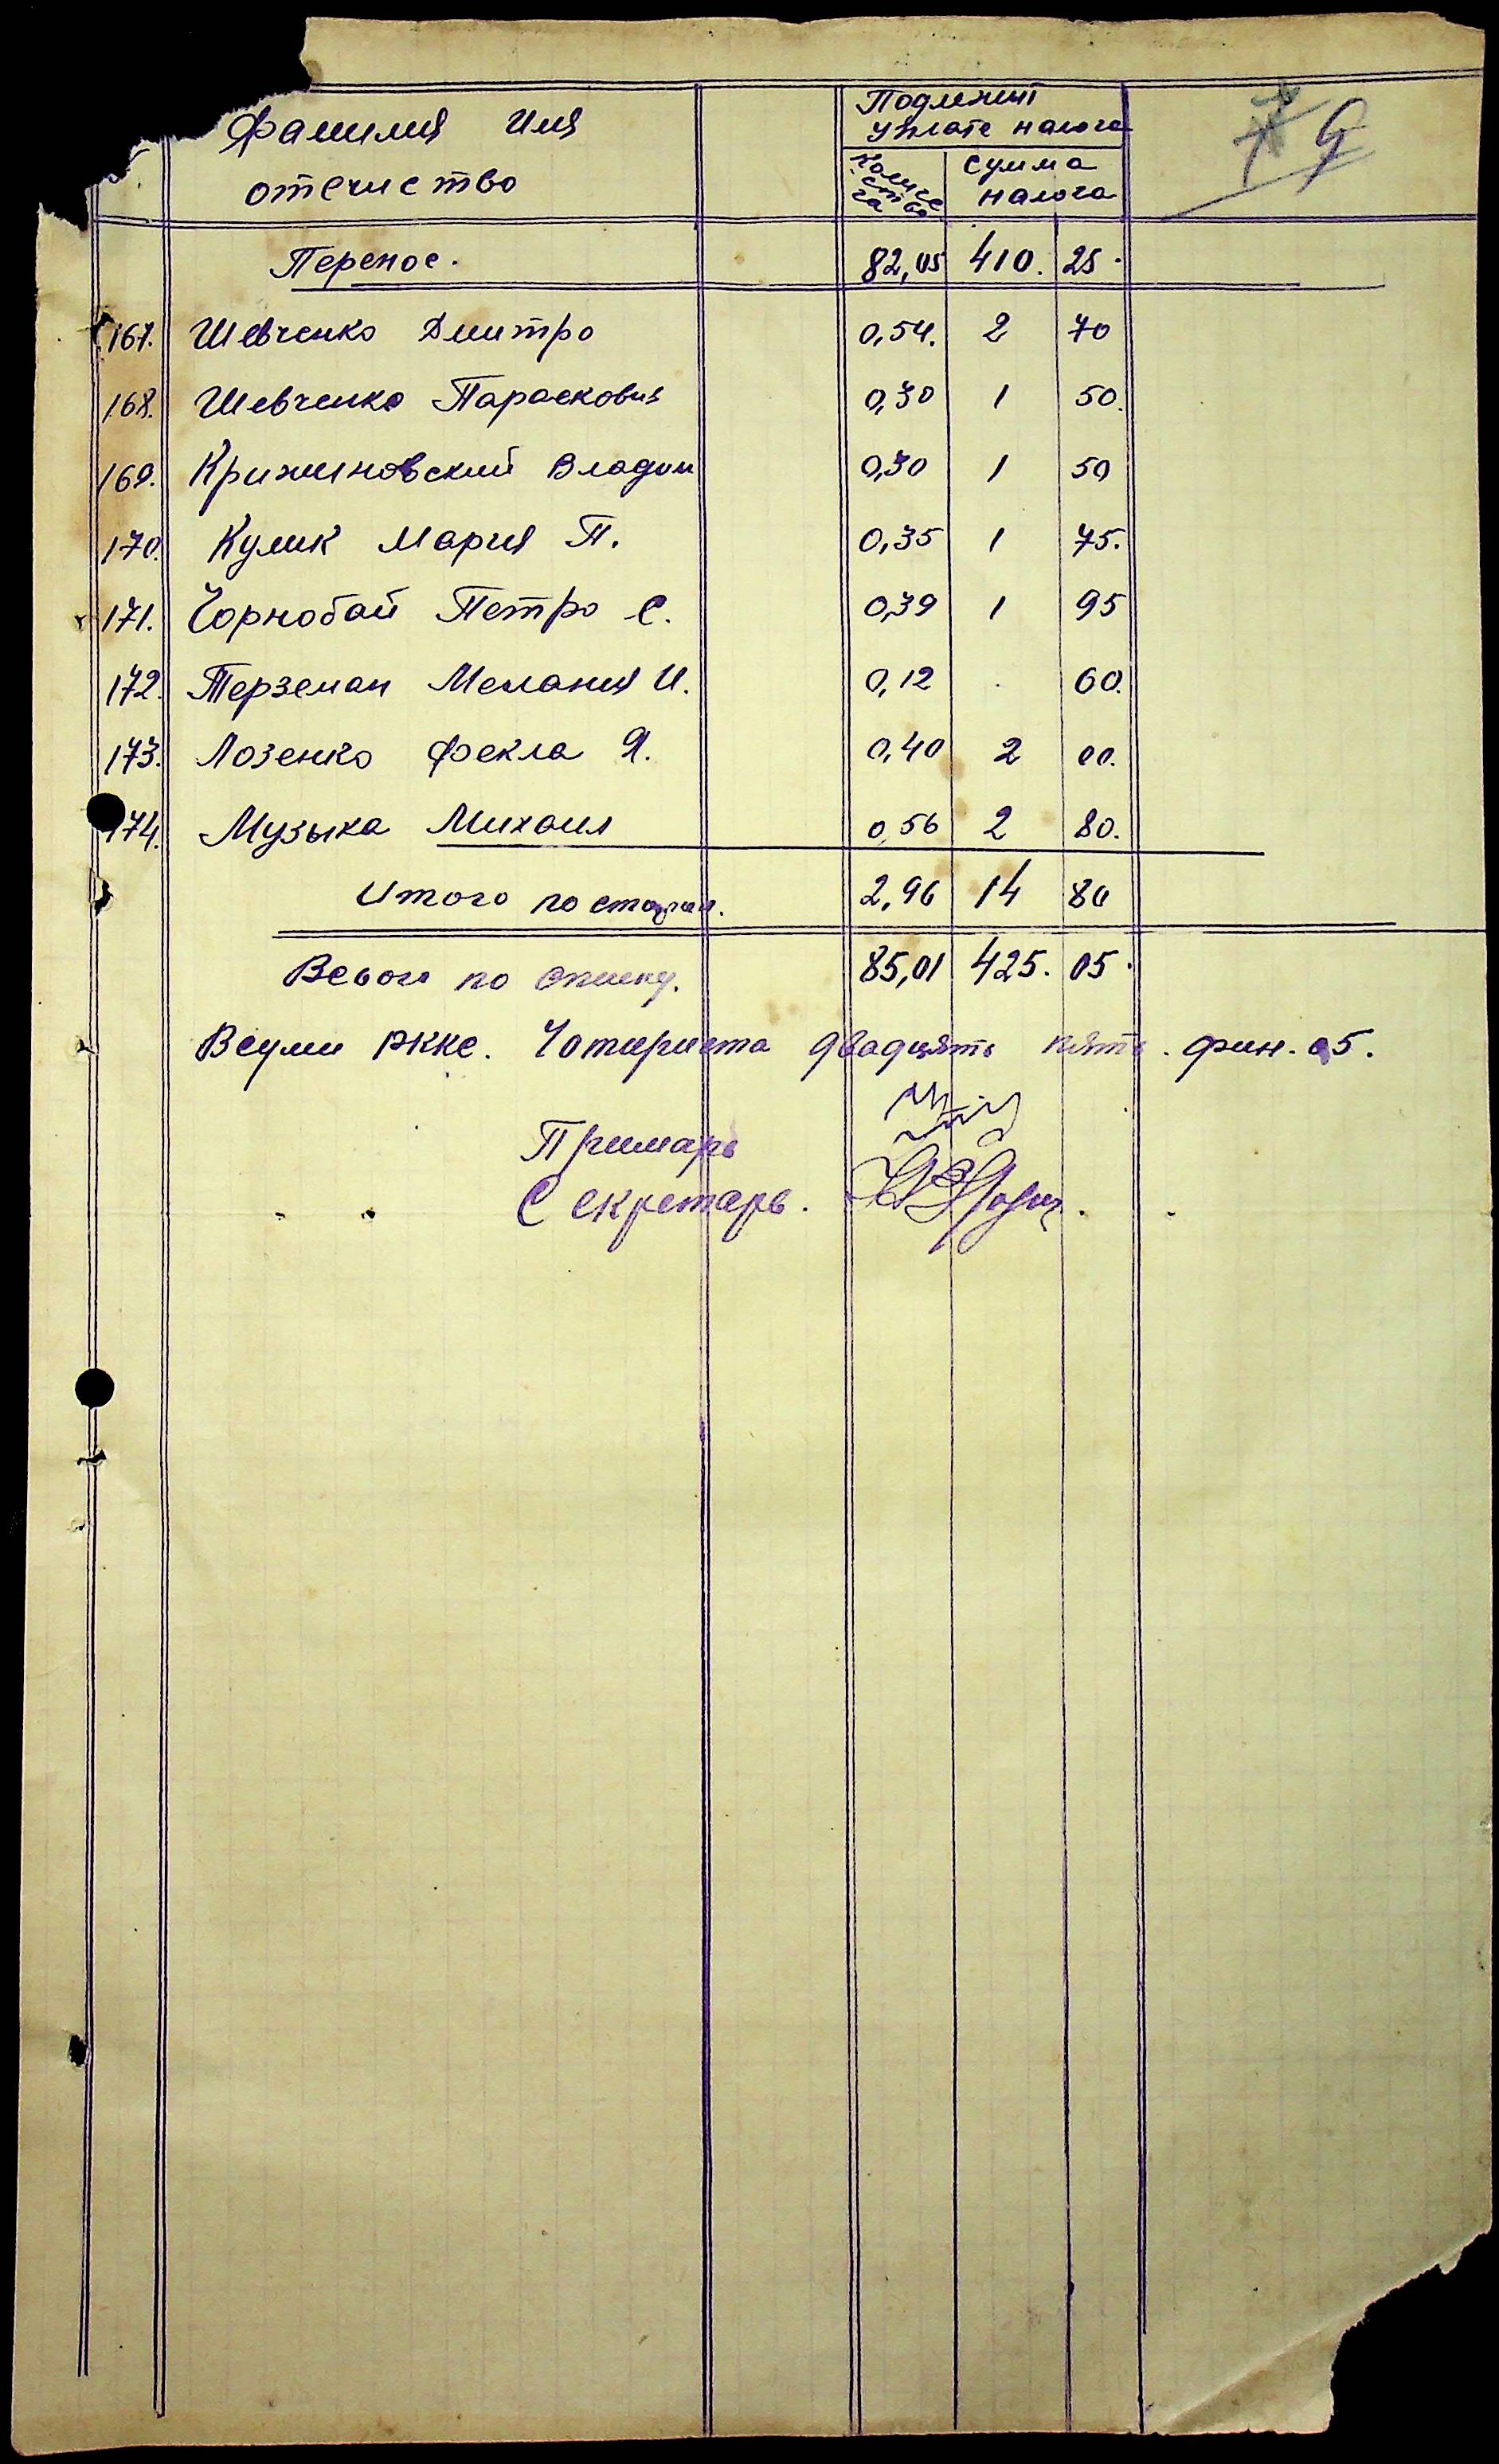 Фамилия Имя
отечиство
Подлежит
уплате налога
Количе
ство
га
сумма
налога
9
Перенос. 82,05 410. 25.
167. Шевченко Дмитро 0,54. 2 70
168. Шевченко Парасковия 0,30 1 50.
169. Крижиновский Владим 0,30 1 50
170. Кулик Мария П. 0,35 1 75.
171. Чорнобай Петро С. 0,39 1 95
172. Терземан Мелания И. 0,12 60.
173. Лозенко Фекла Я. 0,40 2 00.
174. Музыка Михаил 0,56 2 80.
Итого по стороне. 2,96 14 80
Всього по списку. 85,01 425. 05.
Всуми РККС. Чотириста двадцять пять. фин. 05.
Примарь
Секретарь.